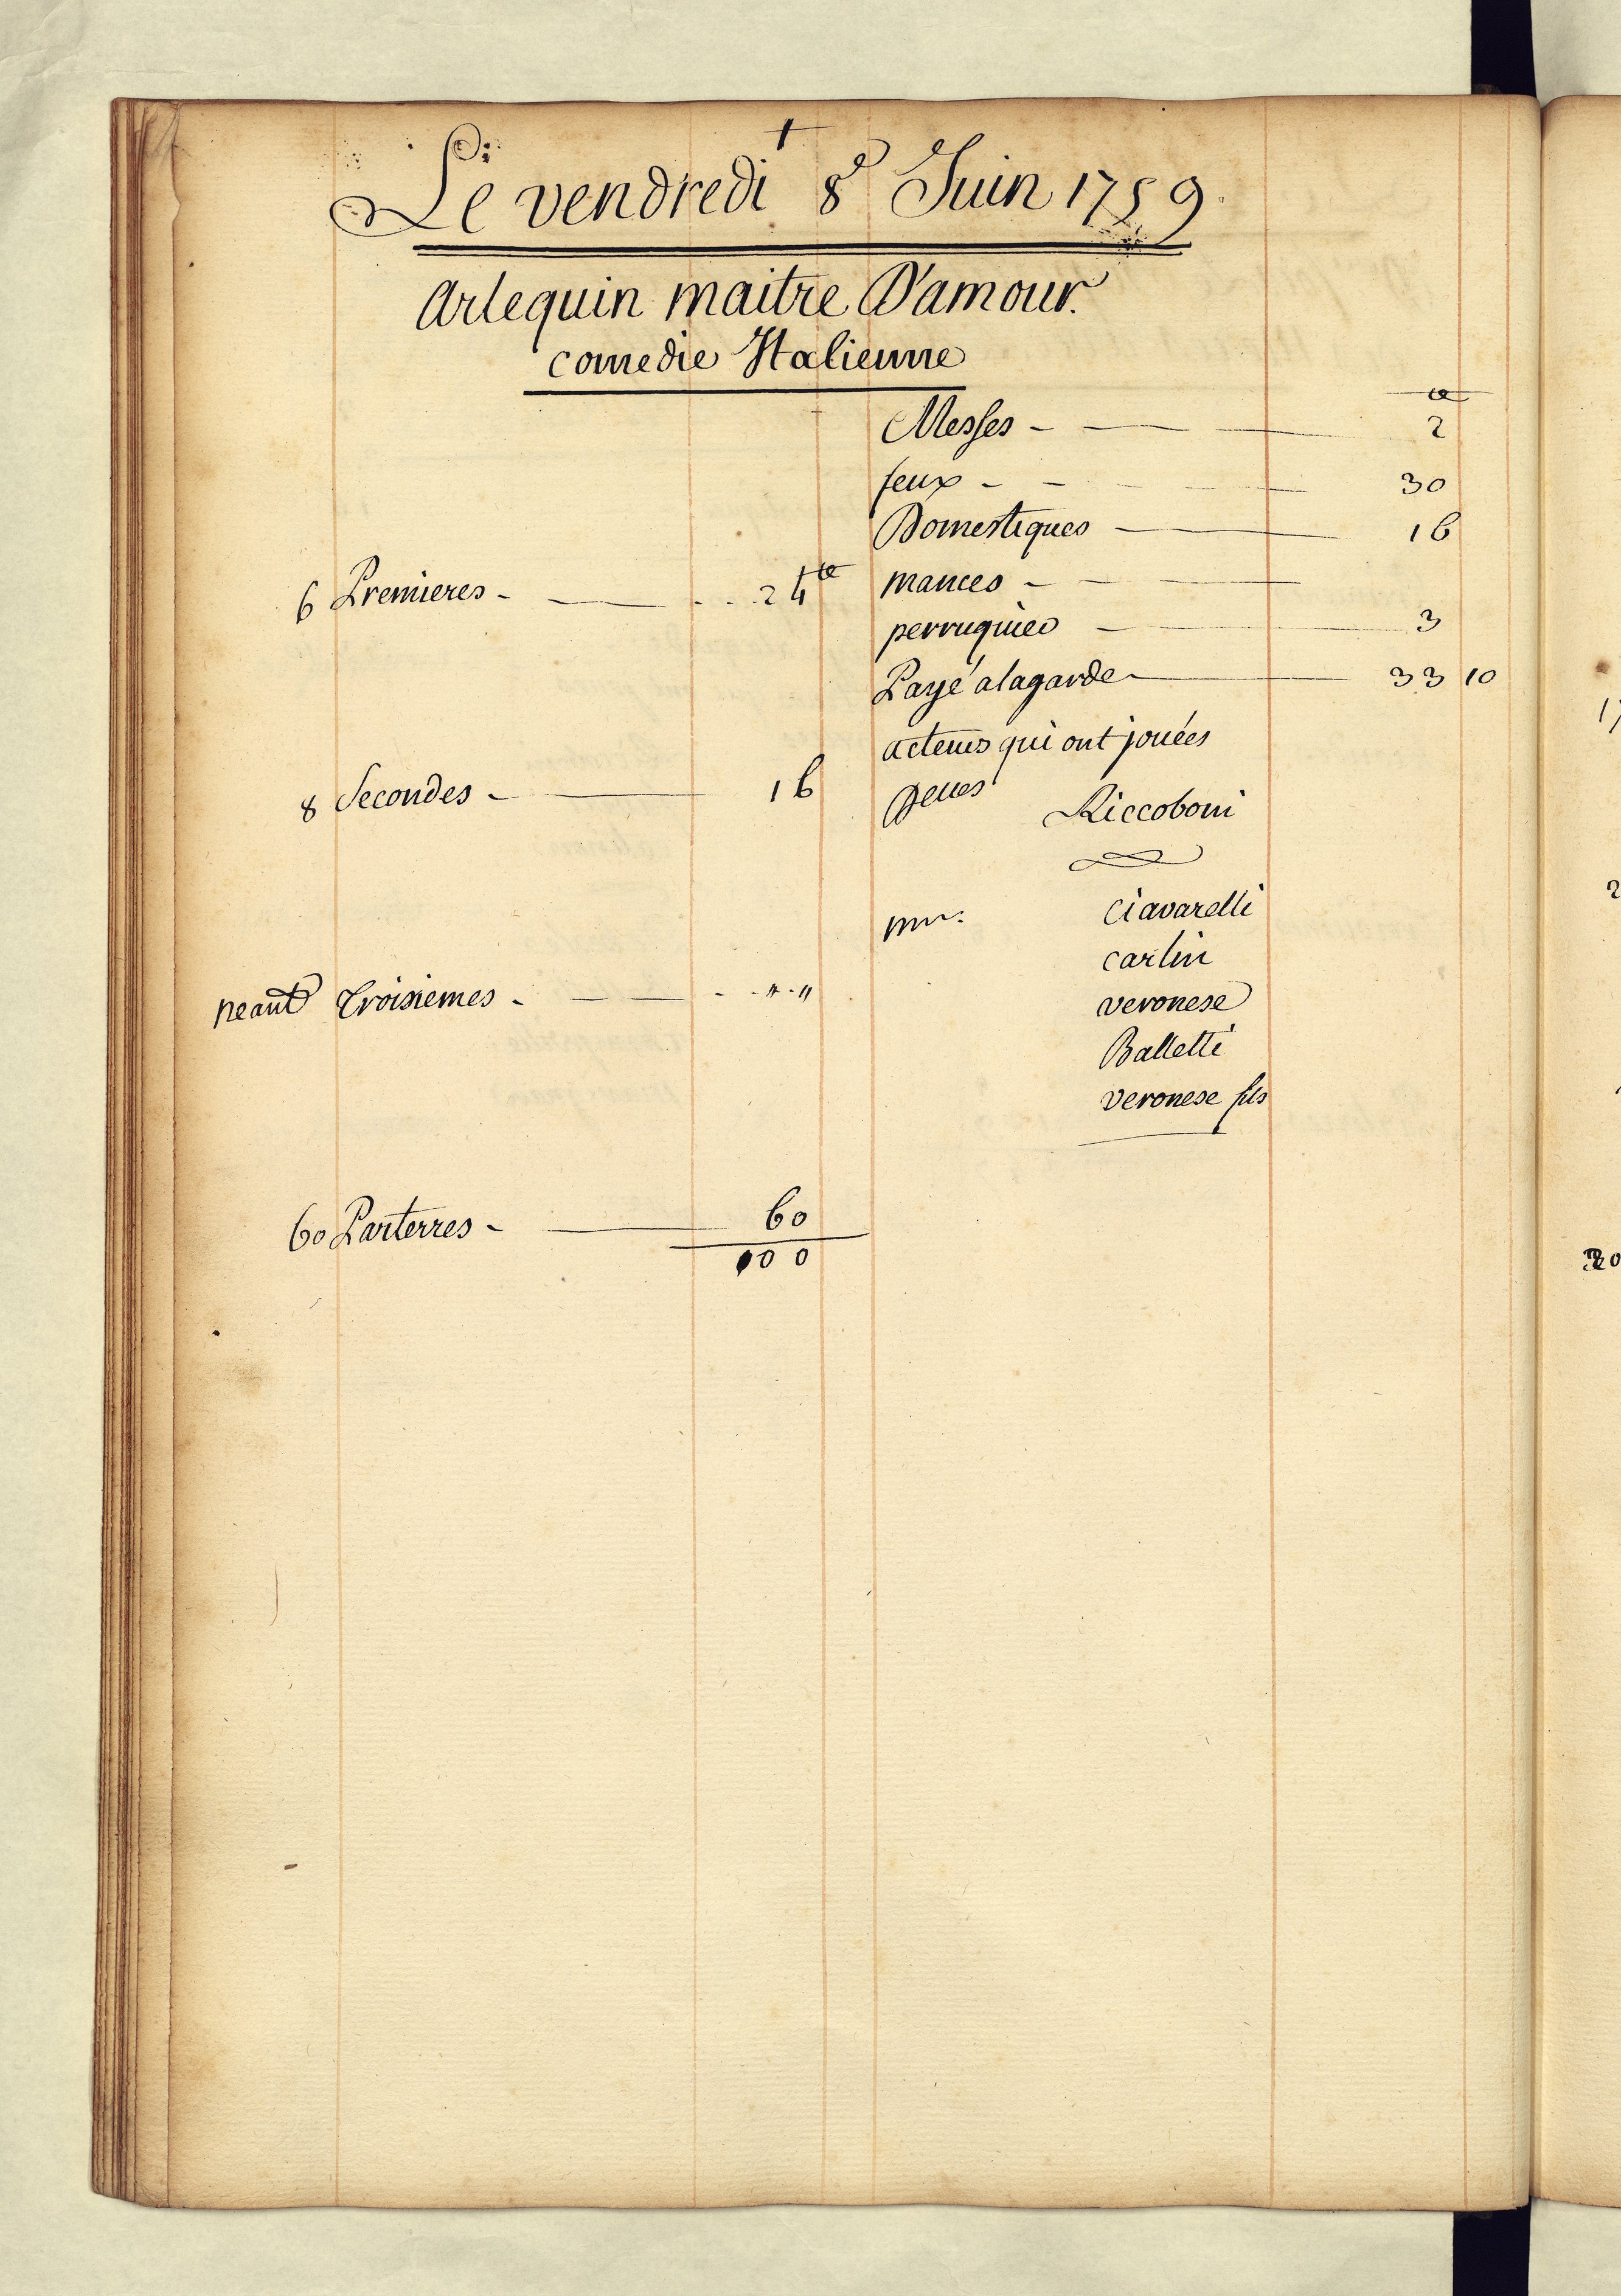 Le vendredi 8 Juin 1759.
Arlequin maitre D'amour.
comedie Italienne
Messes - 2
feux - 30
Domestiques 16
6 Premieres - 24
mances -
perruquier 3
Payé alagarde 33 10
acteurs qui ont jouées
8 Secondes - 16
Riccoboni
Ciavarelli
carlin
neant Troisiemes - " - "
veronese
Balletti
veronese fils
60 Parterres - 60
100